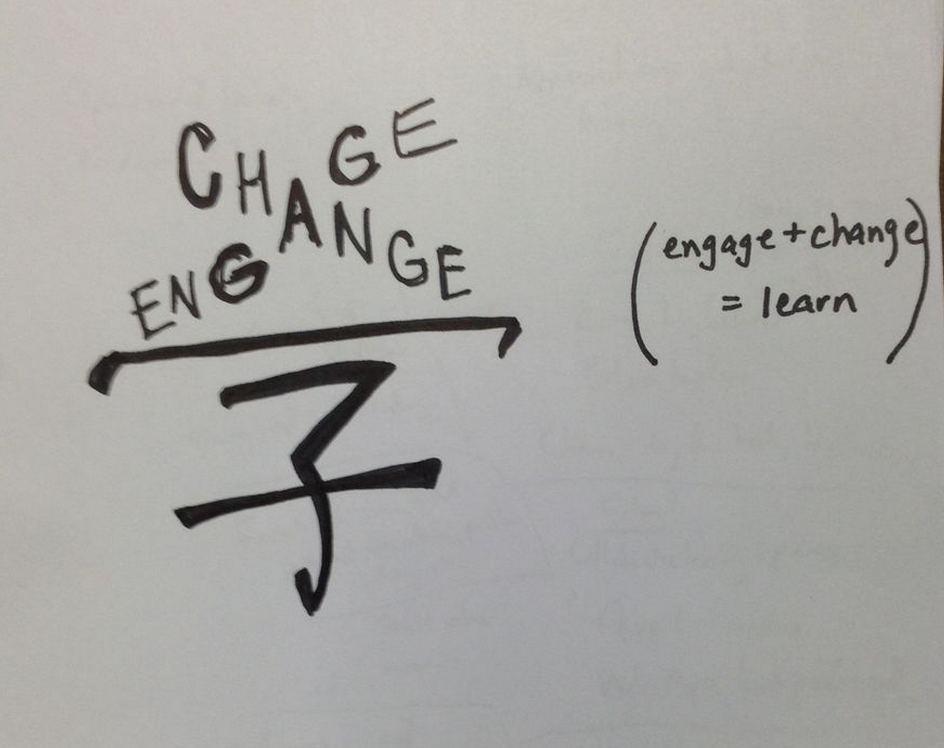 CHANGE
ENGAGE
子
(engage+change
= learn)